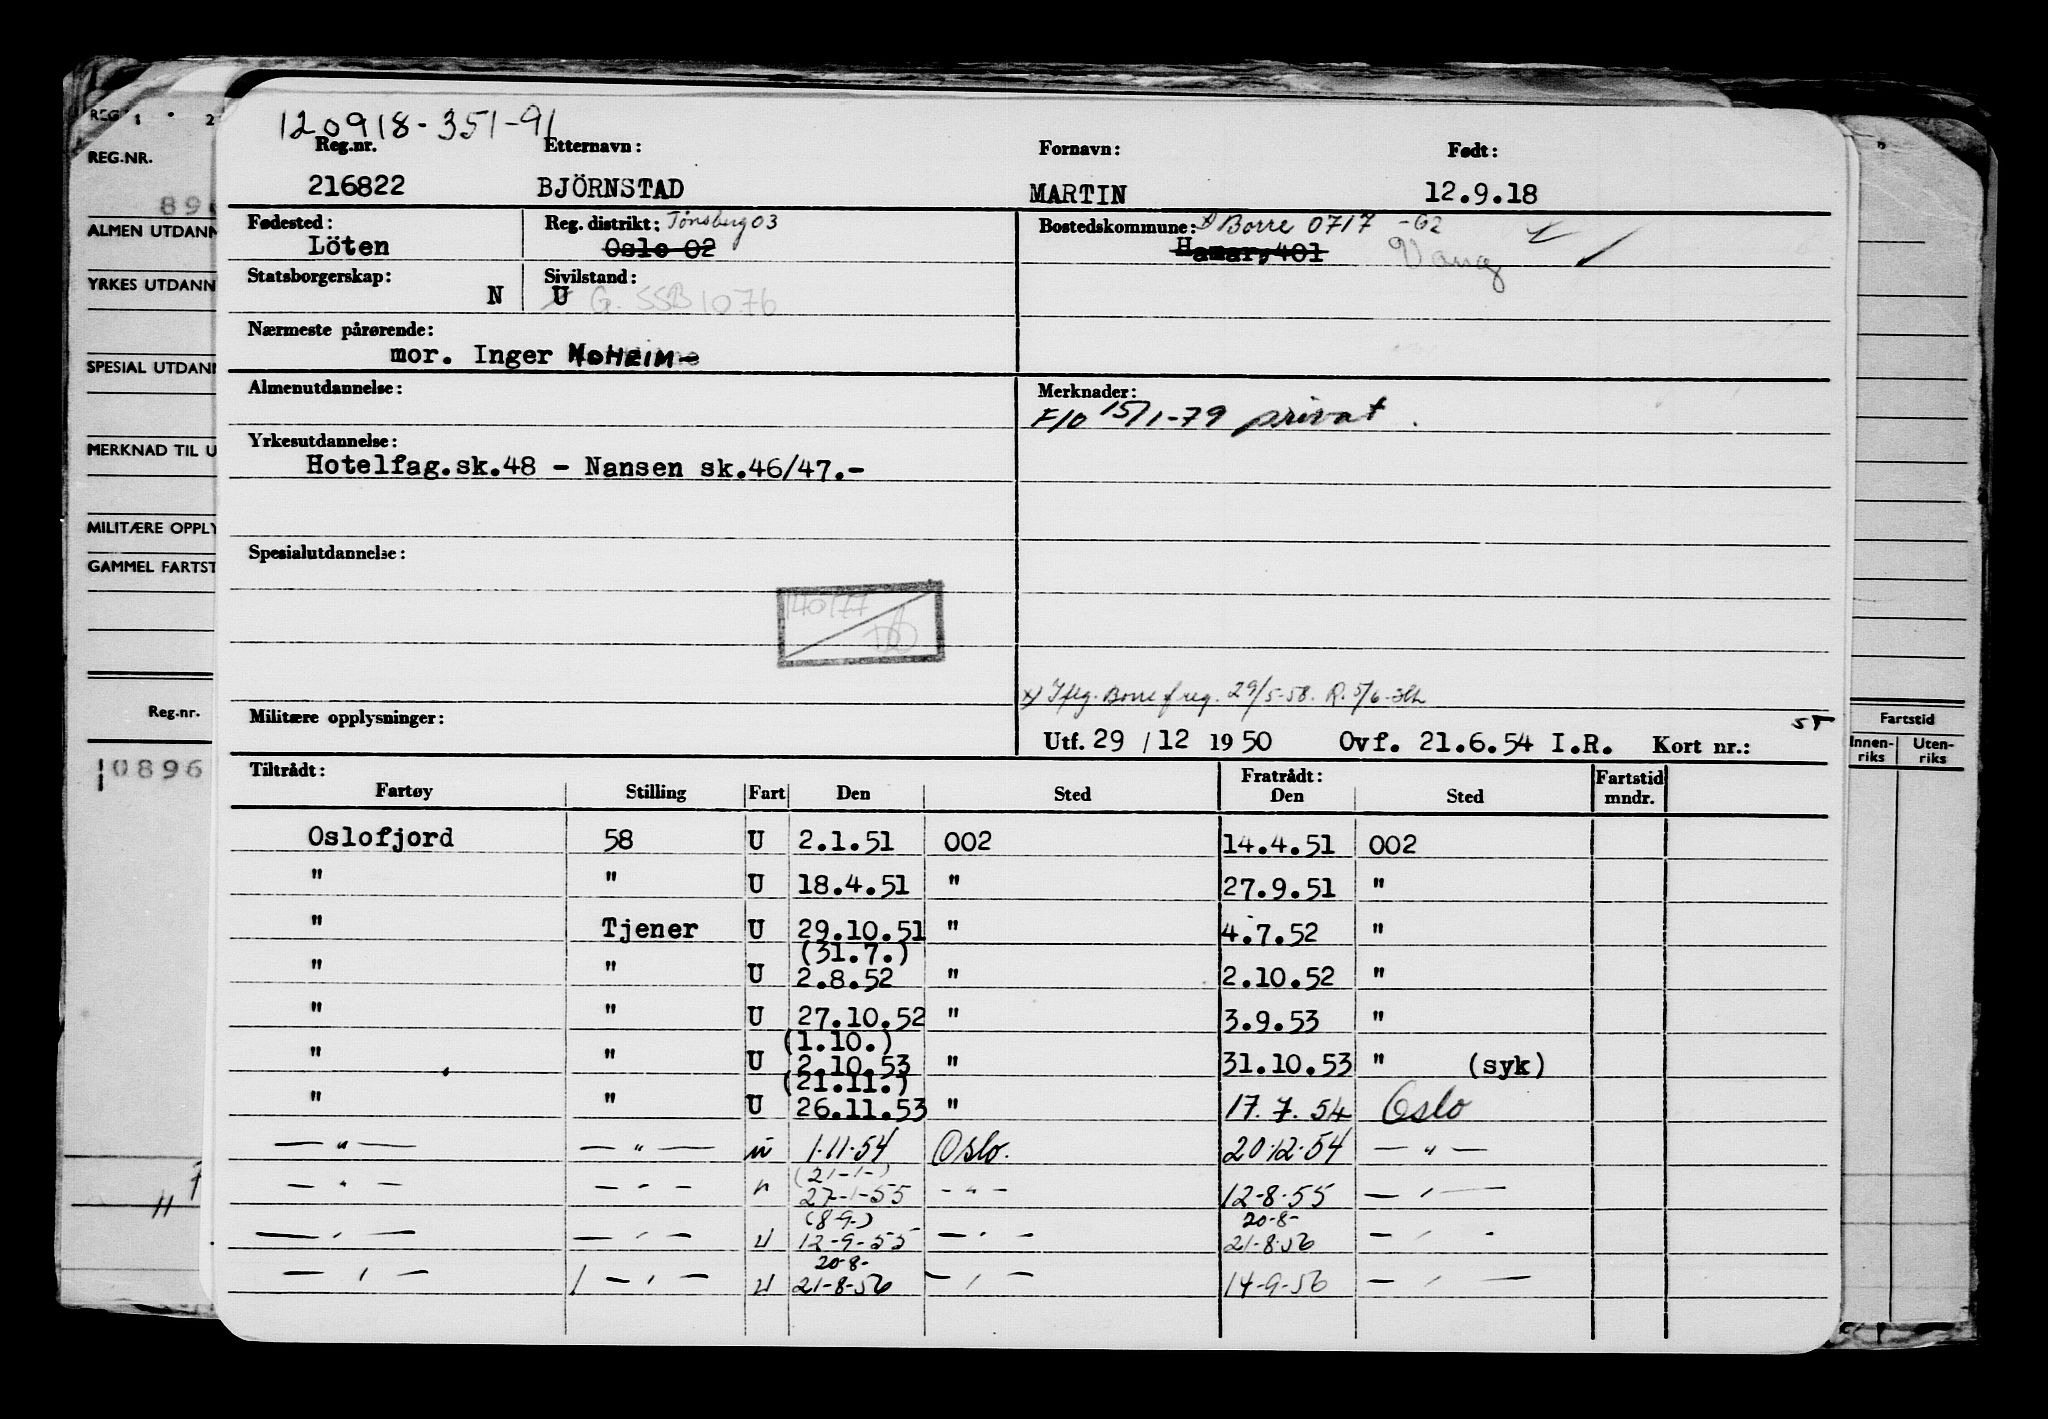 120918-351-91
Reg.nr. Etternavn: Fornavn: Født:
216822 BJÖRNSTAD MARTIN 12.9.18
Fødested: Reg. distrikt: Tönsberg 03 Bostedskommune: x) Borre 0717 -G2
Löten Oslo 02 Hamar, 401 Vang
Statsborgerskap: Sivilstand:
N U G. SSB 1076
Nærmeste pårørende:
mor. Inger MOHEIM
Almenutdannelse: Merknader:
F/O 15/1-79 privat.
Yrkesutdannelse:
Hotelfag.sk.48 - Nansen sk.46/47.-
Spesialutdannelse:
140/77
x) Iflg. Borre f reg. 29/5-58. R. 5/6-
Militære opplysninger:
Utf. 29 / 12 19 50 Ovf. 21.6.54 I.R. Kort nr.:
Tiltrådt: Fratrådt: Fartstid
Fartøy Stilling Fart Den Sted Den Sted mndr.
Oslofjord 58 U 2.1.51 002 14.4.51 002
" " U 18.4.51 " 27.9.51 "
" Tjener U 29.10.51 " 4.7.52 "
(31.7.)
" " U 2.8.52 " 2.10.52 "
" " U 27.10.52 " 3.9.53 "
(1.10.)
" " U 2.10.53 " 31.10.53 " (syk)
(21.11.)
" " U 26.11.53 " 17.7.54 Oslo
— " — — " — u 1.11.54 Oslo. 20.12.54 — " —
(21-1-)
— " — — " — u 27-1-55 — " — 12-8-55 — " —
(8-9-) 20-8-
— " — — " — u 12-9-55 — " — 21-8-56 — " —
20-8-
— " — — " — u 21-8-56 — " — 14-9-56 — " —
REG
REG.NR.
ALMEN UTDANN
YRKES UTDANN
SPESIAL UTDANN
MERKNAD TIL U
MILITÆRE OPPLY
GAMMEL FARTST
Reg.nr.
10896
Fartstid
Innen-riks Uten-riks